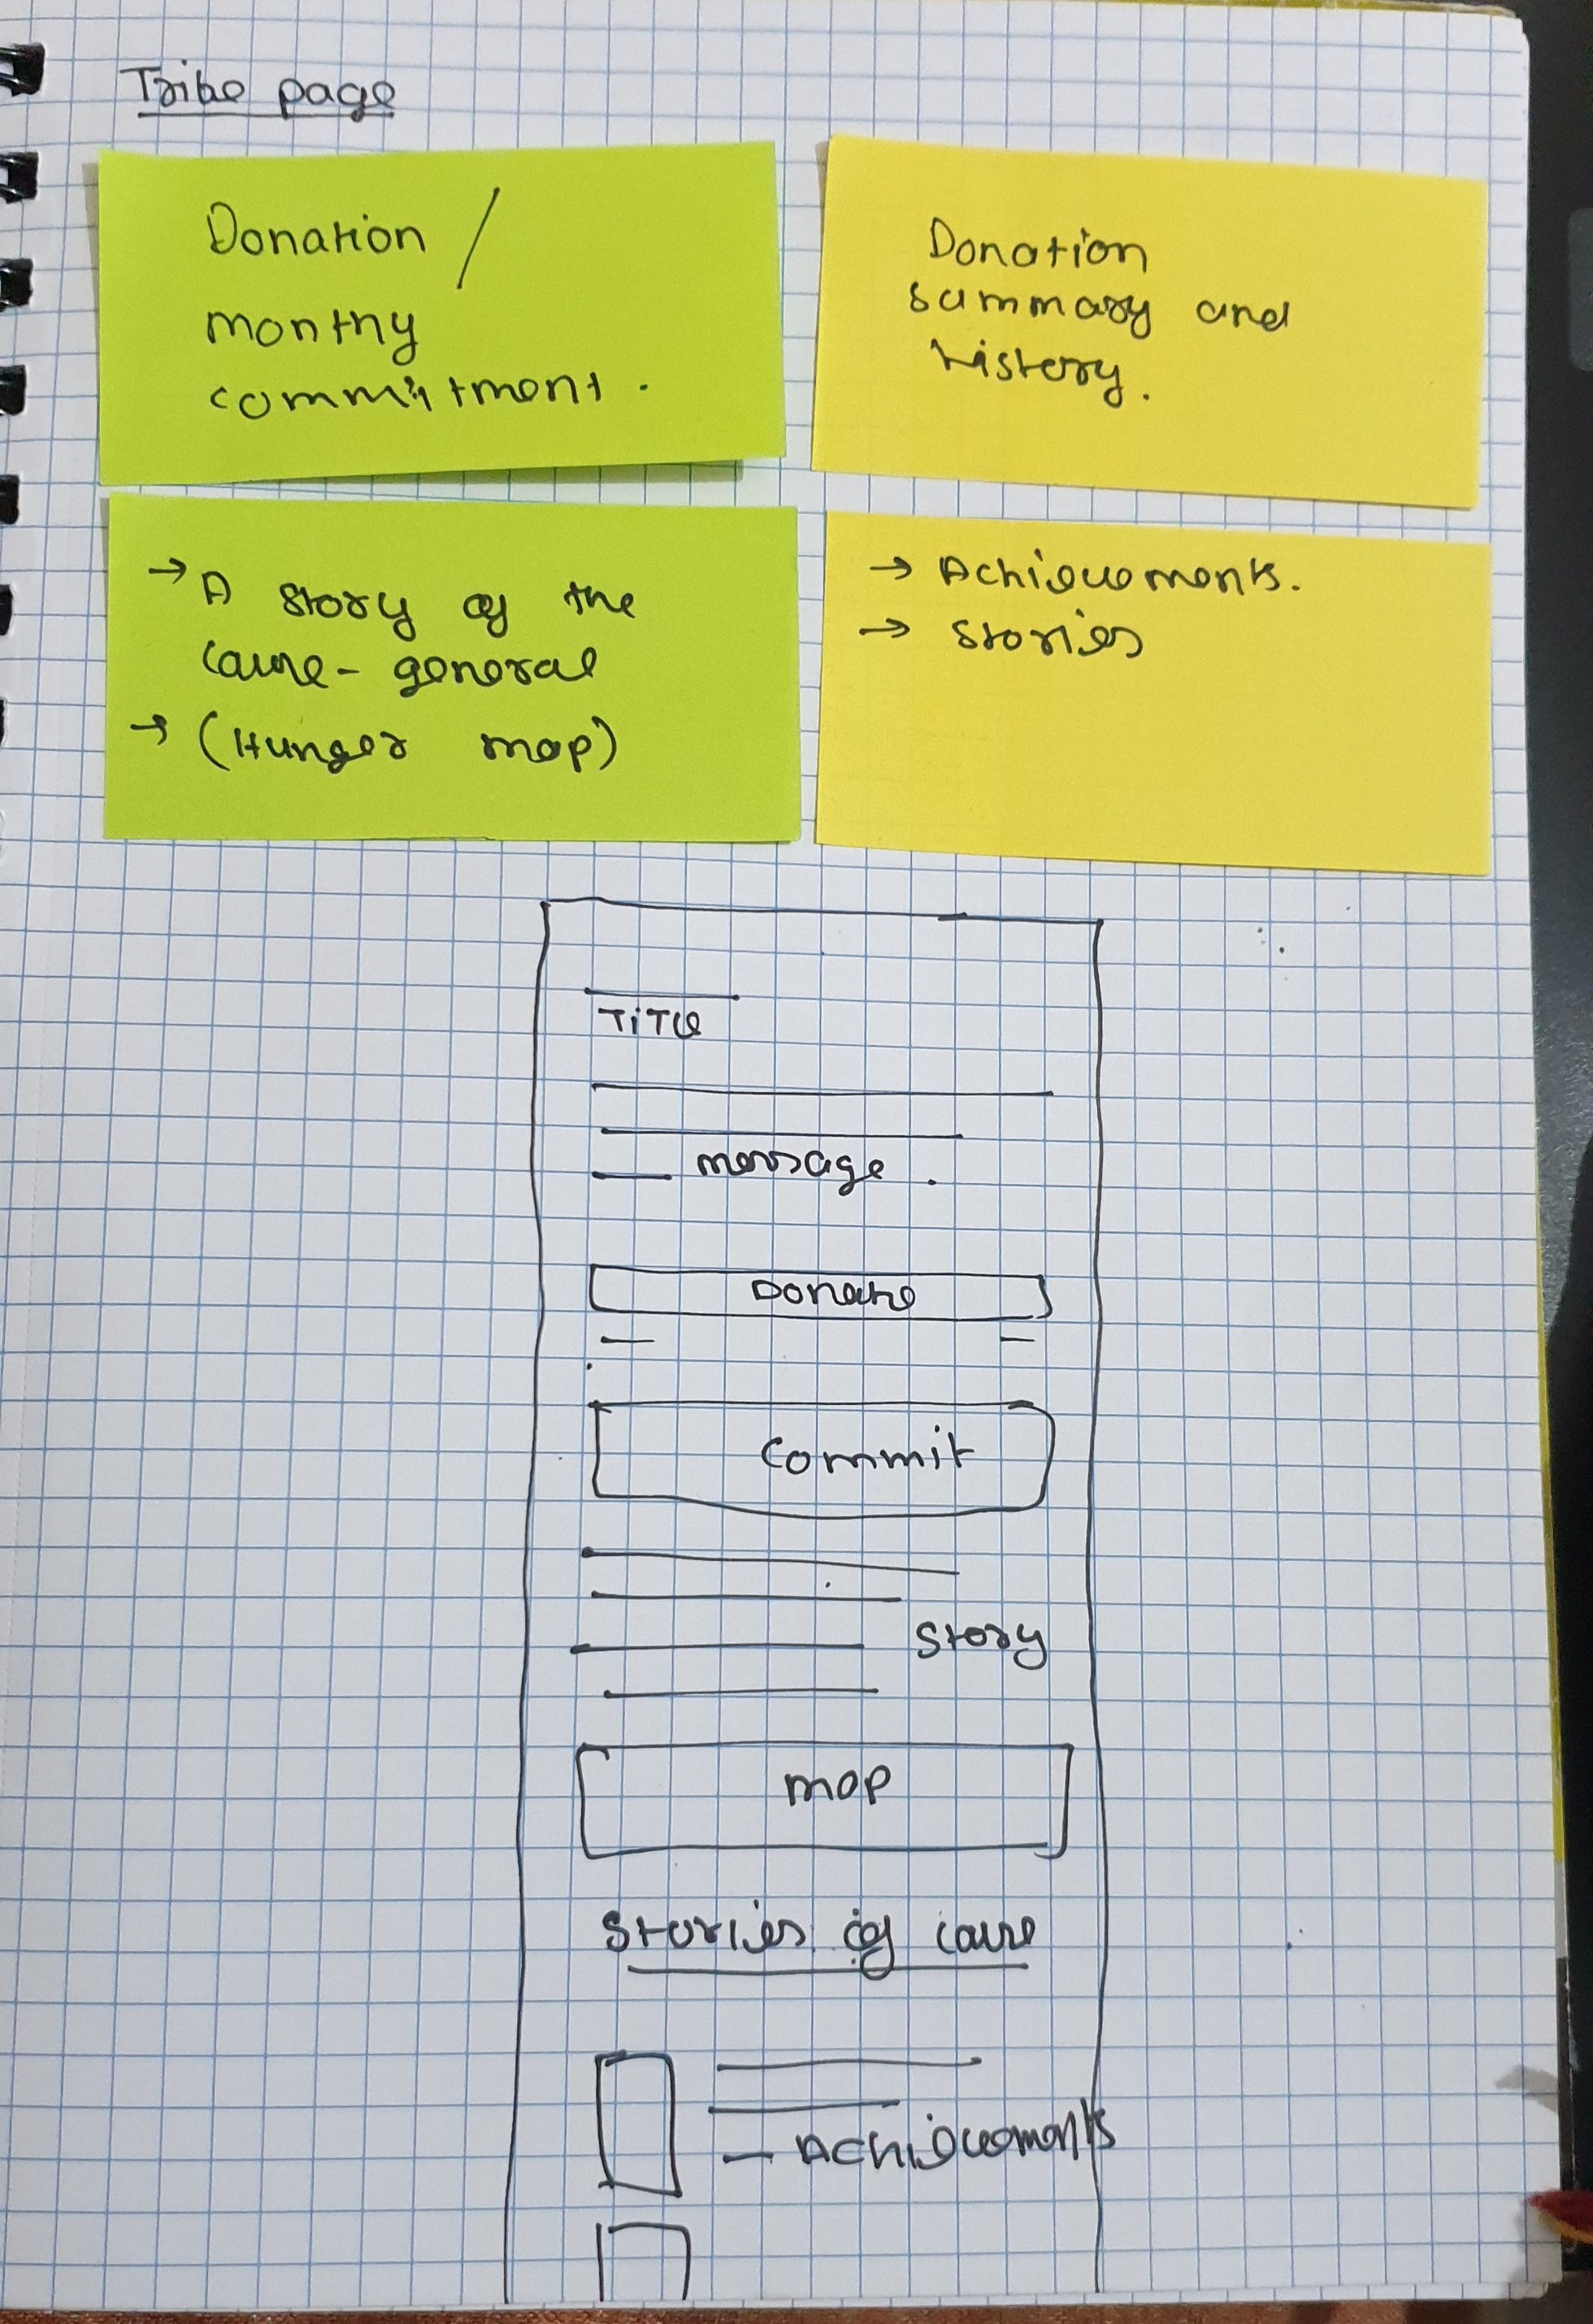 Tribe page
Donation /
monthy
commitment.
Donation
summary and
history.
→ A story of the
cause - general
→ (Hunger map)
→ Achievements.
→ stories
TiTle
message.
Donate
Commit
Story
map
Stories of cause
Achievements